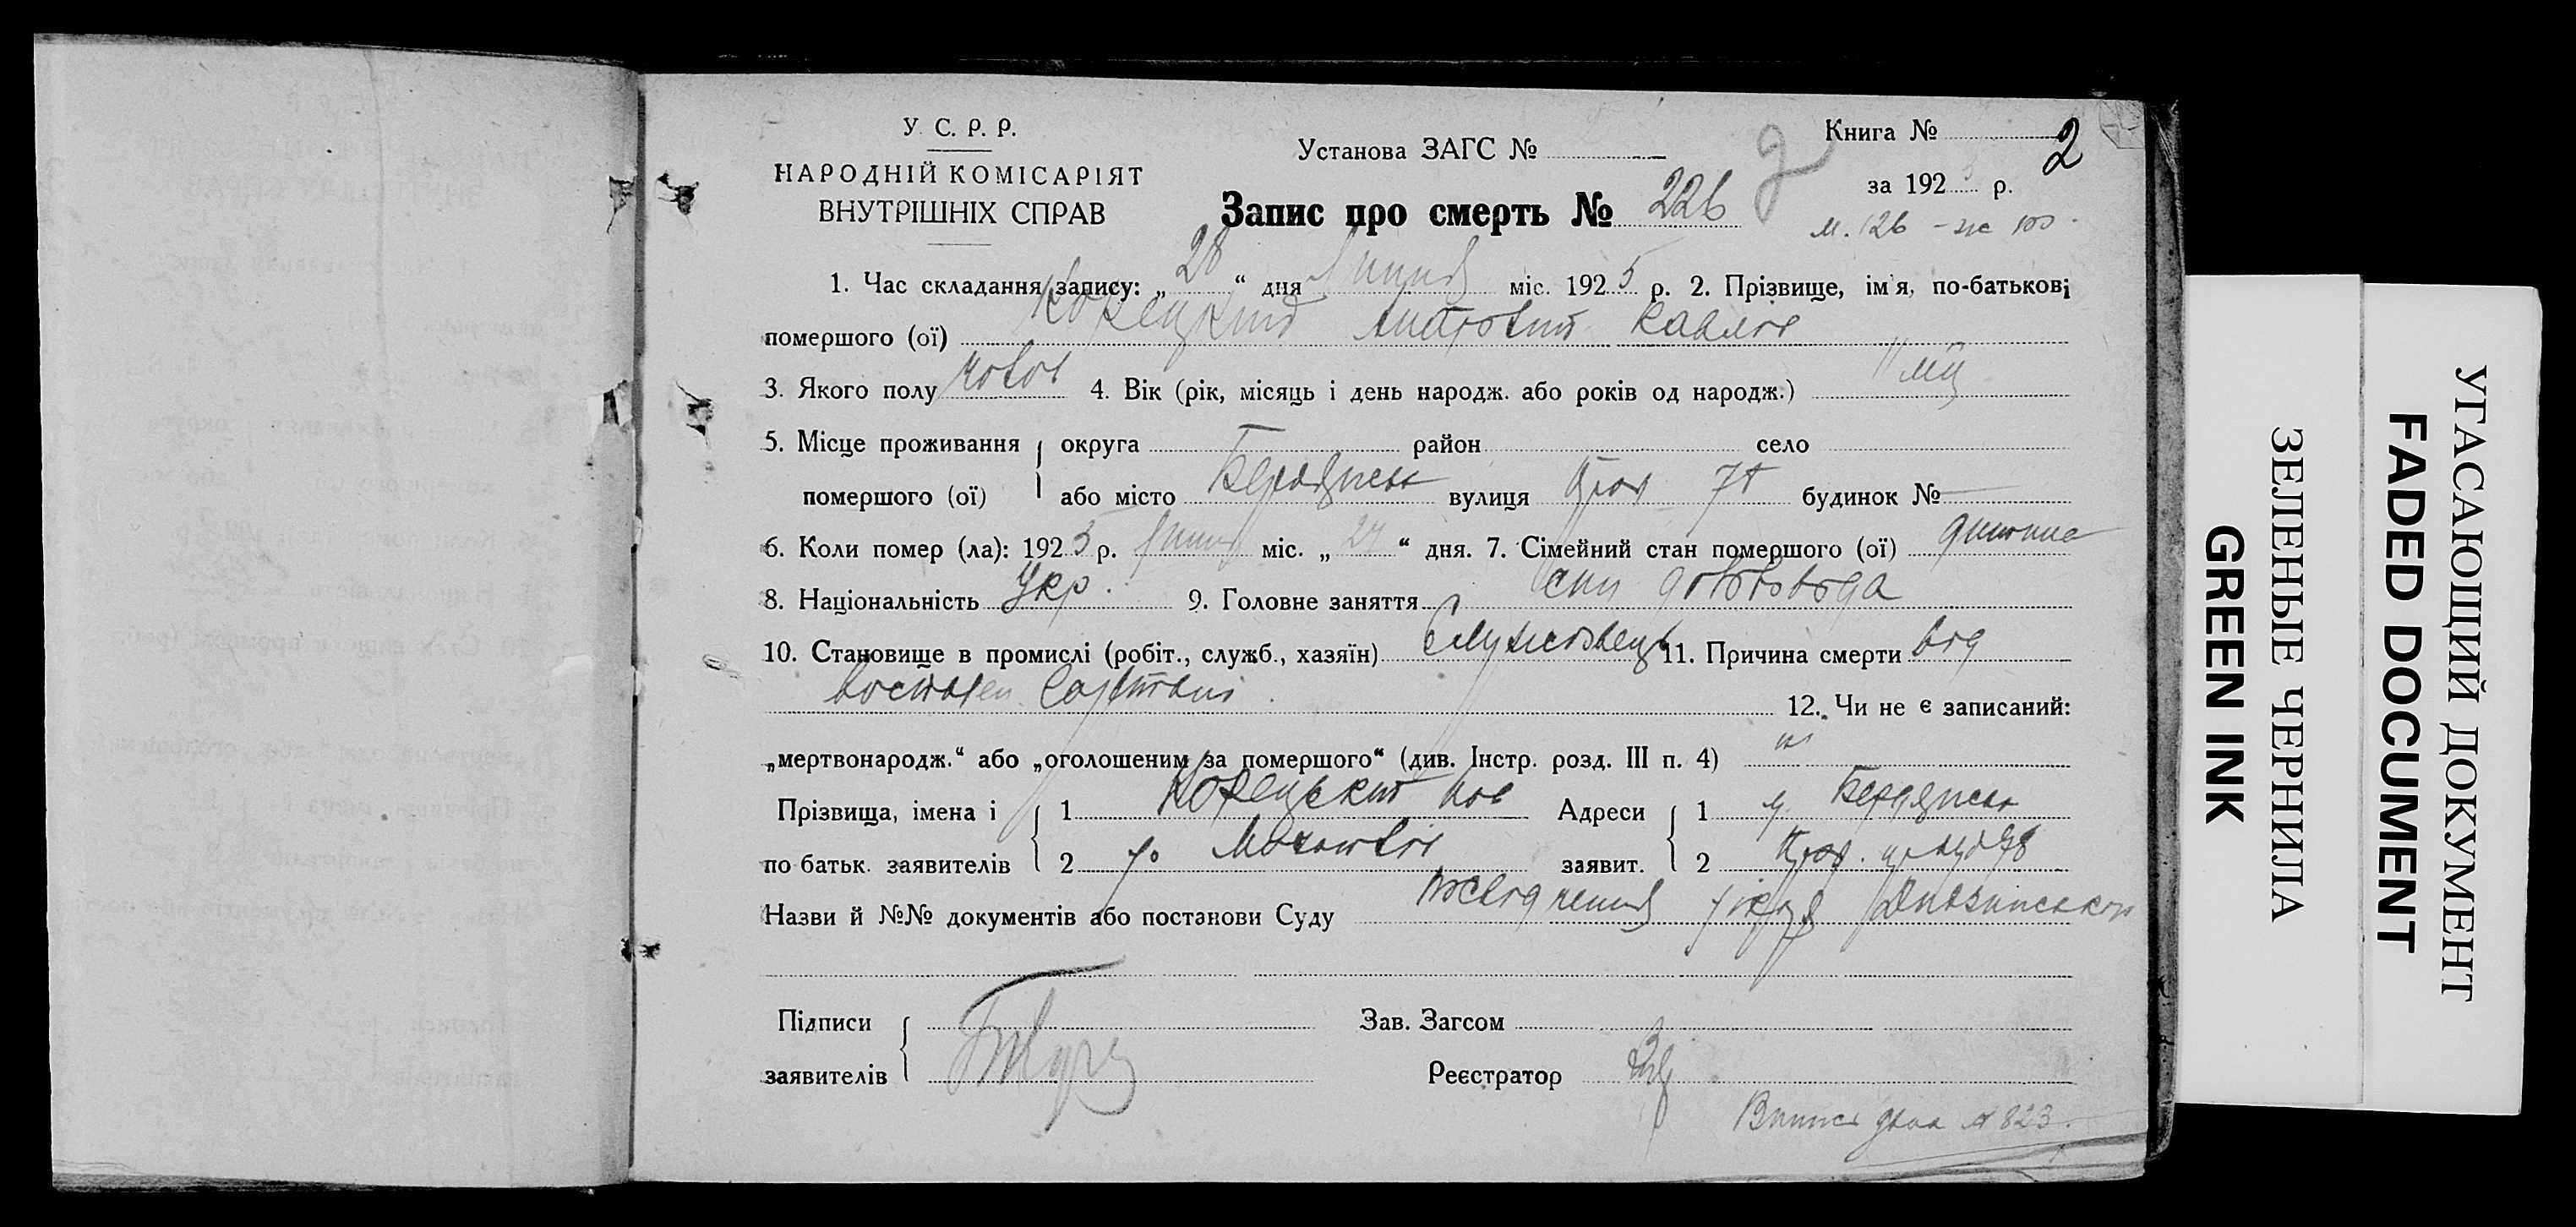 У. С. Р. Р.
НАРОДНІЙ КОМІСАРІЯТ
ВНУТРІШНІХ СПРАВ
Установа ЗАГС №
Книга № 2
за 192 р.
Запис про смерть № 226 2
м. 126 – ж 100.
1. Час складання запису: „ 28 “ дня Липня міс. 192 5 р. 2. Прізвище, ім'я, по-батькові
помершого (ої) Корецкий
3. Якого полу чолов 4. Вік (рік, місяць і день народж. або років од народж.) 11 міс
5. Місце проживання округа район село
помершого (ої) або місто Бердянськ вулиця будинок № —
6. Коли помер (ла): 192 5 р. Липня міс. „ 27 “ дня. 7. Сімейний стан помершого (ої) дитина
8. Національність Укр. 9. Головне заняття син
10. Становище в промислі (робіт., служб., хазяїн) 11. Причина смерти від
12. Чи не є записаний:
„мертвонародж.“ або „оголошеним за помершого“ (див. Інстр. розд. III п. 4) ні
Прізвища, імена і 1 Корецький Адреси 1 м. Бердянськ
по батьк. заявителів 2 заявит. 2
Назви й №№ документів або постанови Суду посвідчення лікаря
Підписи Зав. Загсом
заявителів Реєстратор
Випис дана № 823.
УГАСАЮЩИЙ ДОКУМЕНТ
FADED DOCUMENT
ЗЕЛЕНЫЕ ЧЕРНИЛА
GREEN INK